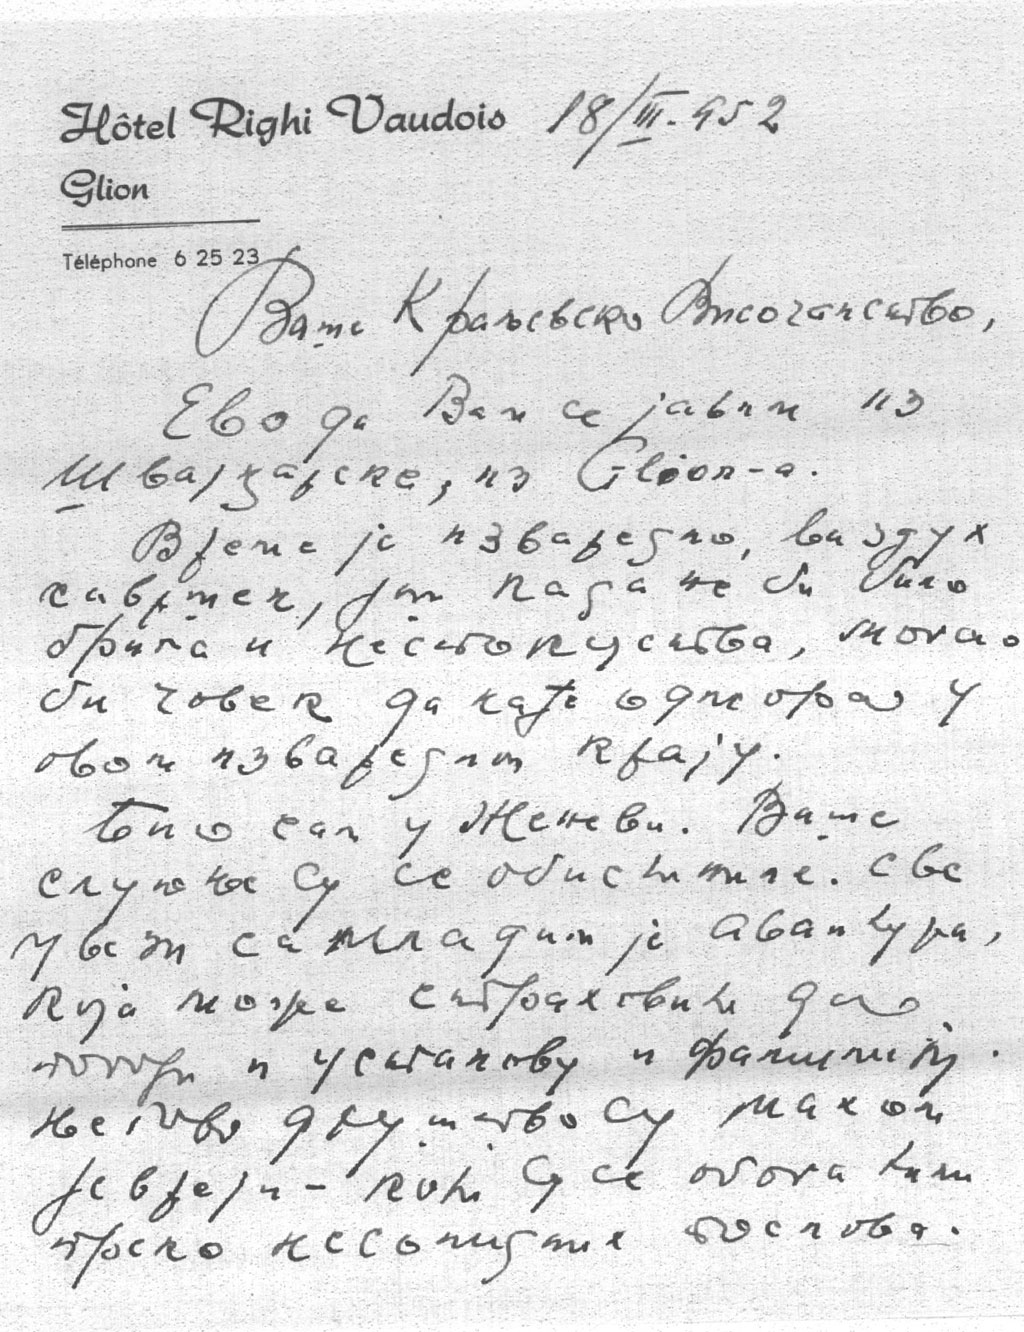 Hôtel Righi Vaudois 18/III.952
Glion
Téléphone 6 25 23
Ваше Краљевско Височанство,
Ево да Вам се јавим из
Швајцарске, из Glion-а.
Време је изваредно, ваздух
савршен, још када не би било
брига и неспокојства, могао
би човек да нађе одмора у
овом изваредном крају.
Био сам у Женеви. Ваше
слутње су се обистиниле. Све
у вези са младим је авантура,
која може страховити дао
и установу и фамилију.
Његово друштво су махом
Јевреји – који су се обогатили
преко несолидних послова.